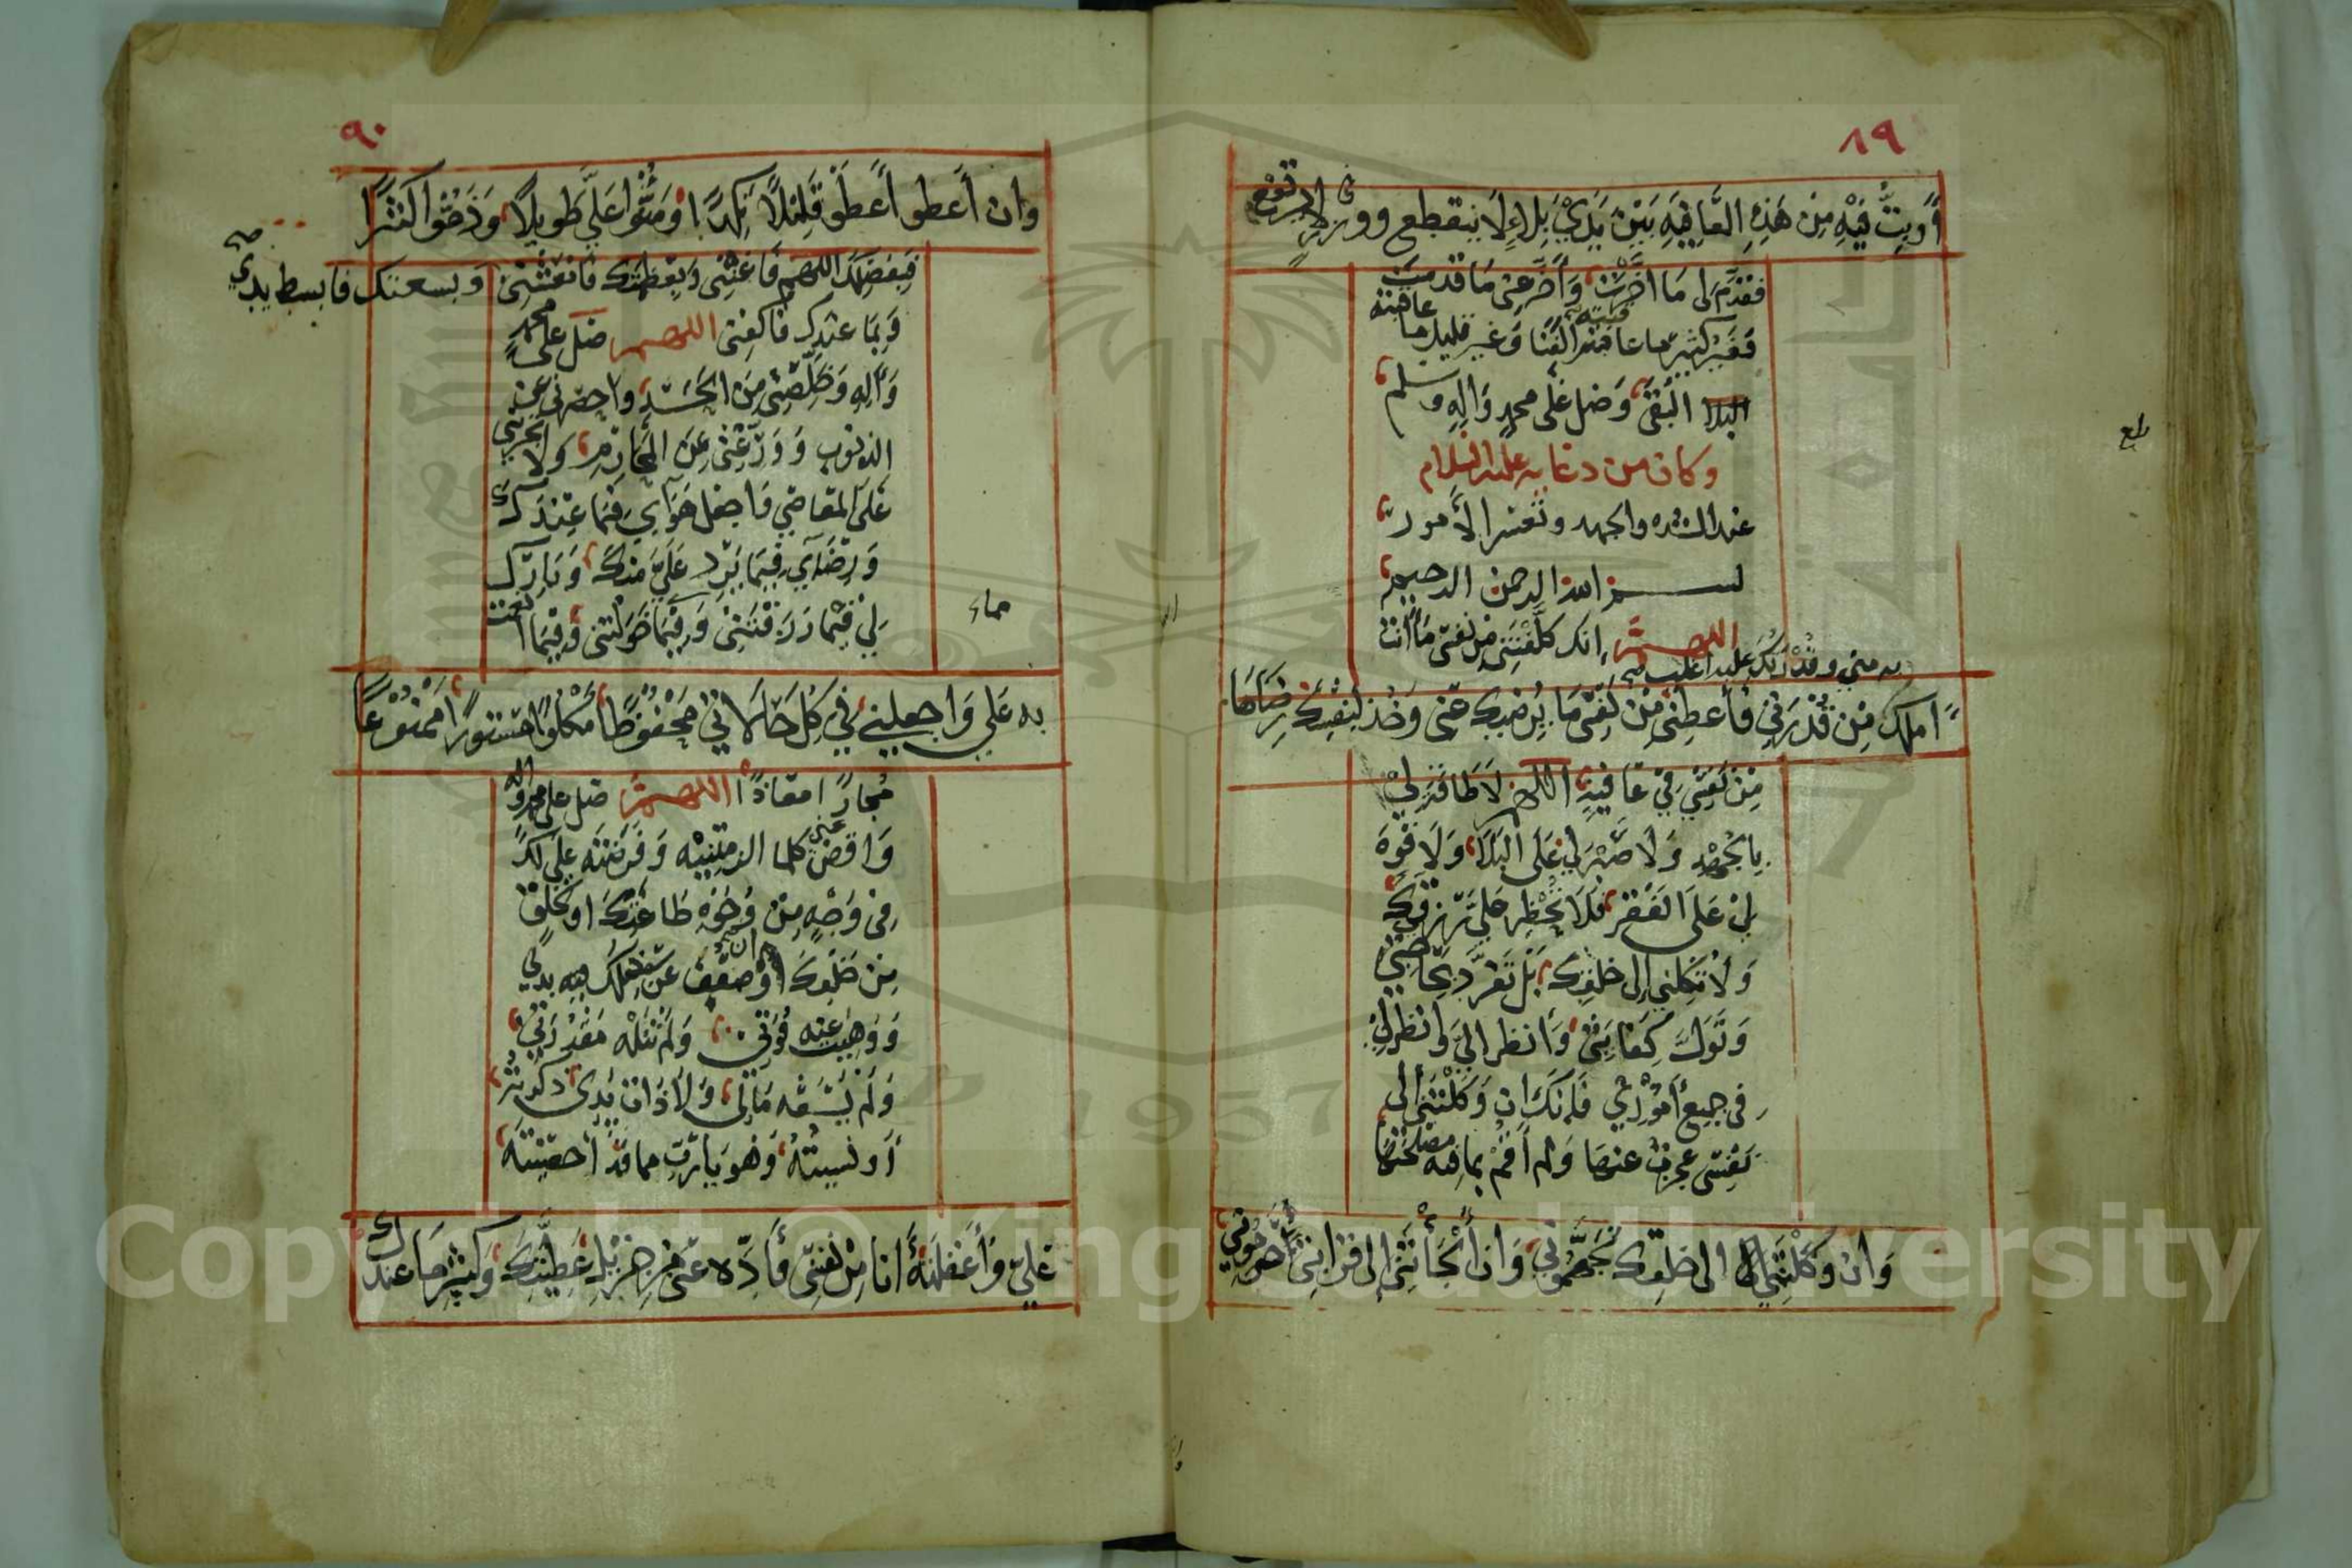 ٨٩
أو بت فيه من هذه العافيه بين يدي بلاء لا ينقطع ووزر لا يرتفع
فقدم لي ما اخرت وأخر عني ما قدمت
فغير كثير ما عاقبته الفنا وغير قليل ما عاقبته
البقى وصل على محمد واله وسلم
وكان من دعايه عليه السلام
عند الشده والجهد وتعسر الأمور
بسم الله الرحمن الرحيم
اللهم انك كلفتني من نفسي ما أنت
به مني وقدرتك عليه اغلب
املك من قدرتي فأعطني من نفسي ما يرضيك عني وخذ لنفسك رضاها
من نفسي في عافيه اللهم لا طاقة لي
بالجهد ولا صبر لي على البلا ولا قوه
لي على الفقر فلا تحظر علي رزقك
ولا تكلني الى خلقك بل تفرد بحاجتي
وتول كفايتي وانظر الي وانظر لي
في جميع أموري فإنك ان وكلتني الى
نفسي عجزت عنها ولم أقم بما فيه مصلحتها
وان وكلتني الى خلقك تجهموني وان ألجأتني الى قرابتي حرموني
طع
٩٠
وان أعطو أعطو قليلا نكدا ومنوا علي طويلا وذموا كثيرا
فبفضلك اللهم فأغنني وبعظمتك فانعشني وبسعتك فابسط يدي
صح
وبما عندك فاكفني اللهم صل على محمد
وآله وخلصني من الحسد واحصرني عن
الذنوب وورعني عن المحارم ولا تجرئني
على المعاصي واجعل هواي فيما عندك
ورضاي فيما يرد علي منك وبارك
لي فيما رزقتني وفيما خولتني وفيما انعمت
به علي واجعلني في كل حالاتي محفوظا مكلوا مستورا ممنوعا
مجارا معاذا اللهم صل على محمد واله
واقض عني كلما الزمتنيه وفرضته علي لك
في وجه من وجوه طاعتك او لخلق
من خلقك وان ضعف عن ذلك بدني
ووهنت عنه قوتي ولم تنله مقدرتي
ولم يسعه مالي ولا ذات يدي ذكرته
أو نسيته وهو يا رب مما قد احصيته
علي وأغفلته انا من نفسي فأده عني من جزيل عطيتك وكثير ما عندك